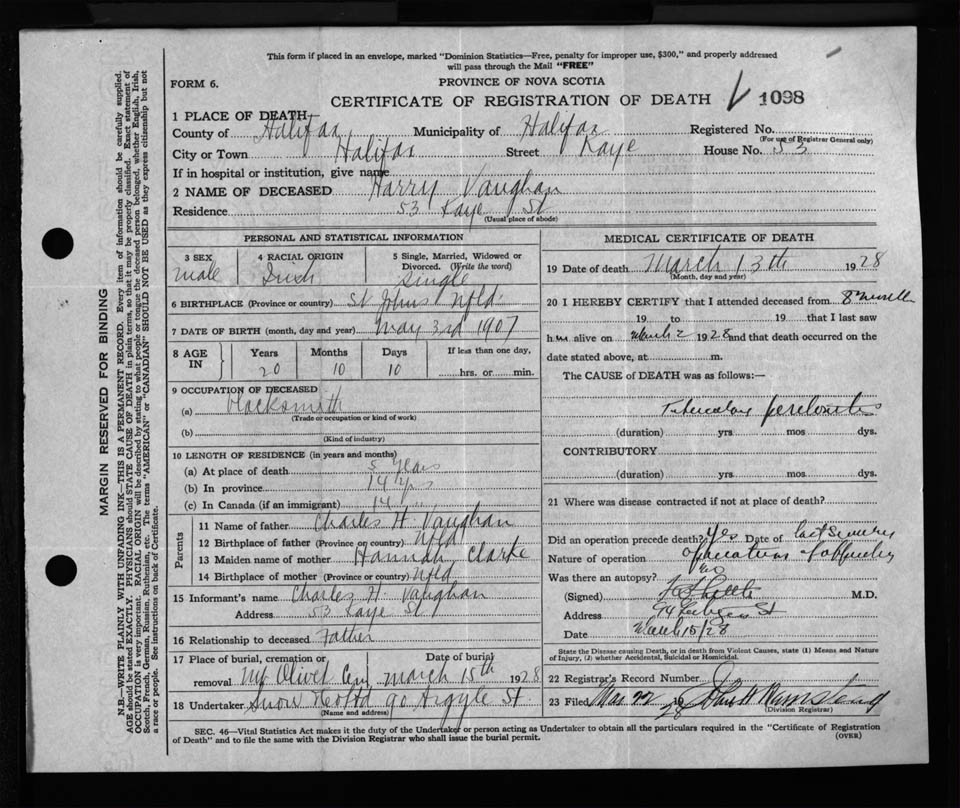 This form if placed in an envelope, marked "Dominion Statistics—Free, penalty for improper use, $300," and properly addressed
will pass through the Mail "FREE"
FORM 6.
PROVINCE OF NOVA SCOTIA
CERTIFICATE OF REGISTRATION OF DEATH 1098
1 PLACE OF DEATH
County of Halifax Municipality of Halifax Registered No.
(For use of Registrar General only)
City or Town Halifax Street Kaye House No. 53
If in hospital or institution, give name
2 NAME OF DECEASED Harry Vaughan
Residence 53 Kaye St
(Usual place of abode)
PERSONAL AND STATISTICAL INFORMATION
3 SEX
male
4 RACIAL ORIGIN
5 Single, Married, Widowed or
Divorced. (Write the word)
Single
6 BIRTHPLACE (Province or country) St Johns Nfld
7 DATE OF BIRTH (month, day and year) May 3rd 1907
8 AGE
IN
Years
20
Months
10
Days
10
If less than one day,
hrs. or min.
9 OCCUPATION OF DECEASED
(a) Blacksmith
(Trade or occupation or kind of work)
(b)
(Kind of industry)
10 LENGTH OF RESIDENCE (in years and months)
(a) At place of death 5 years
(b) In province 14 yrs
(c) In Canada (if an immigrant) 14
Parents
11 Name of father Charles H. Vaughan
12 Birthplace of father (Province or country) Nfld
13 Maiden name of mother Hannah Clarke
14 Birthplace of mother (Province or country) Nfld
15 Informant's name Charles H. Vaughan
Address 53 Kaye St
16 Relationship to deceased Father
17 Place of burial, cremation or
removal Mt Olivet Cem
Date of burial
March 15th 1928
18 Undertaker Snow & Co Ltd 90 Argyle St
(Name and address)
MEDICAL CERTIFICATE OF DEATH
19 Date of death March 13th 1928
(Month, day and year)
20 I HEREBY CERTIFY that I attended deceased from
19 to 19 that I last saw
h im alive on March 2 1928 and that death occurred on the
date stated above, at m.
The CAUSE of DEATH was as follows:—
Tubercular peritonitis
(duration) yrs mos dys.
CONTRIBUTORY
(duration) yrs mos dys.
21 Where was disease contracted if not at place of death?
Did an operation precede death? Yes Date of last summer
Nature of operation
Was there an autopsy? No
(Signed) M.D.
Address St
Date March 15/28
State the Disease causing Death, or in death from Violent Causes, state (1) Means and Nature
of Injury, (2) whether Accidental, Suicidal or Homicidal.
22 Registrar's Record Number
23 Filed Mar 22 1928
(Division Registrar)
SEC. 46—Vital Statistics Act makes it the duty of the Undertaker or person acting as Undertaker to obtain all the particulars required in the "Certificate of Registration
of Death" and to file the same with the Division Registrar who shall issue the burial permit.
(OVER)
MARGIN RESERVED FOR BINDING
N.B.—WRITE PLAINLY WITH UNFADING INK—THIS IS A PERMANENT RECORD. Every item of information should be carefully supplied.
AGE should be stated EXACTLY. PHYSICIANS should STATE CAUSE OF DEATH in plain terms, so that it may be properly classified. Exact statement of
OCCUPATION is very important. RACIAL ORIGIN will be described by stating to what people or tongue the deceased person belonged, whether English, Irish,
Scotch, French, German, Russian, Ruthenian, etc. The terms "AMERICAN" or "CANADIAN" SHOULD NOT BE USED as they express citizenship but not
a race or people. See instructions on back of Certificate.